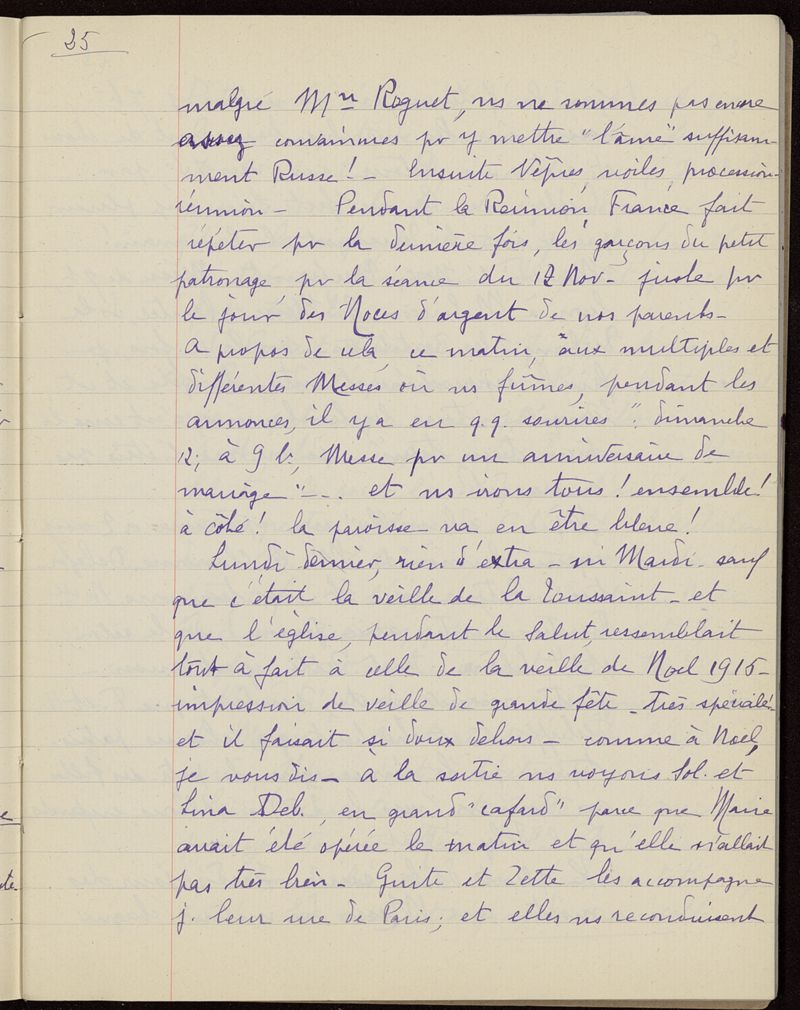 25
malgré Mr Roguet, ns ne sommes pas encore
assez convaincues pr y mettre "l'âme" suffisam-
ment Russe! - Ensuite Vêpres, voiles, procession-
réunion - Pendant la Réunion, France fait
répéter pr la dernière fois, les garçons du petit
patronage, pr la séance du 12 Nov - juste pr
le jour des Noces d'argent de nos parents -
A propos de cela, ce matin, aux multiples et
différentes Messes où ns fûmes, pendant les
annonces, il y a eu q.q. sourires ": dimanche
12, à 9 h, Messe pr un anniversaire de
mariage" - .. et ns irons tous! ensemble!
à côté! la paroisse va en être bleue!
Lundi dernier, rien d'extra - ni Mardi - sauf
que c'était la veille de la Toussaint - et
que l'église, pendant le Salut, ressemblait
tout à fait à celle de la veille de Noel 1915 -
impression de veille de grande fête - très spéciale -
et il faisait si doux dehors - comme à Noel,
je vous dis - à la sortie ns voyons Sol. et
Lina Deb., en grand "cafard" parce que Marie
avait été opérée le matin et qu'elle n'allait
pas très bien - Guite et Zette les accompagne
j. leur rue de Paris; et elles ns reconduisent